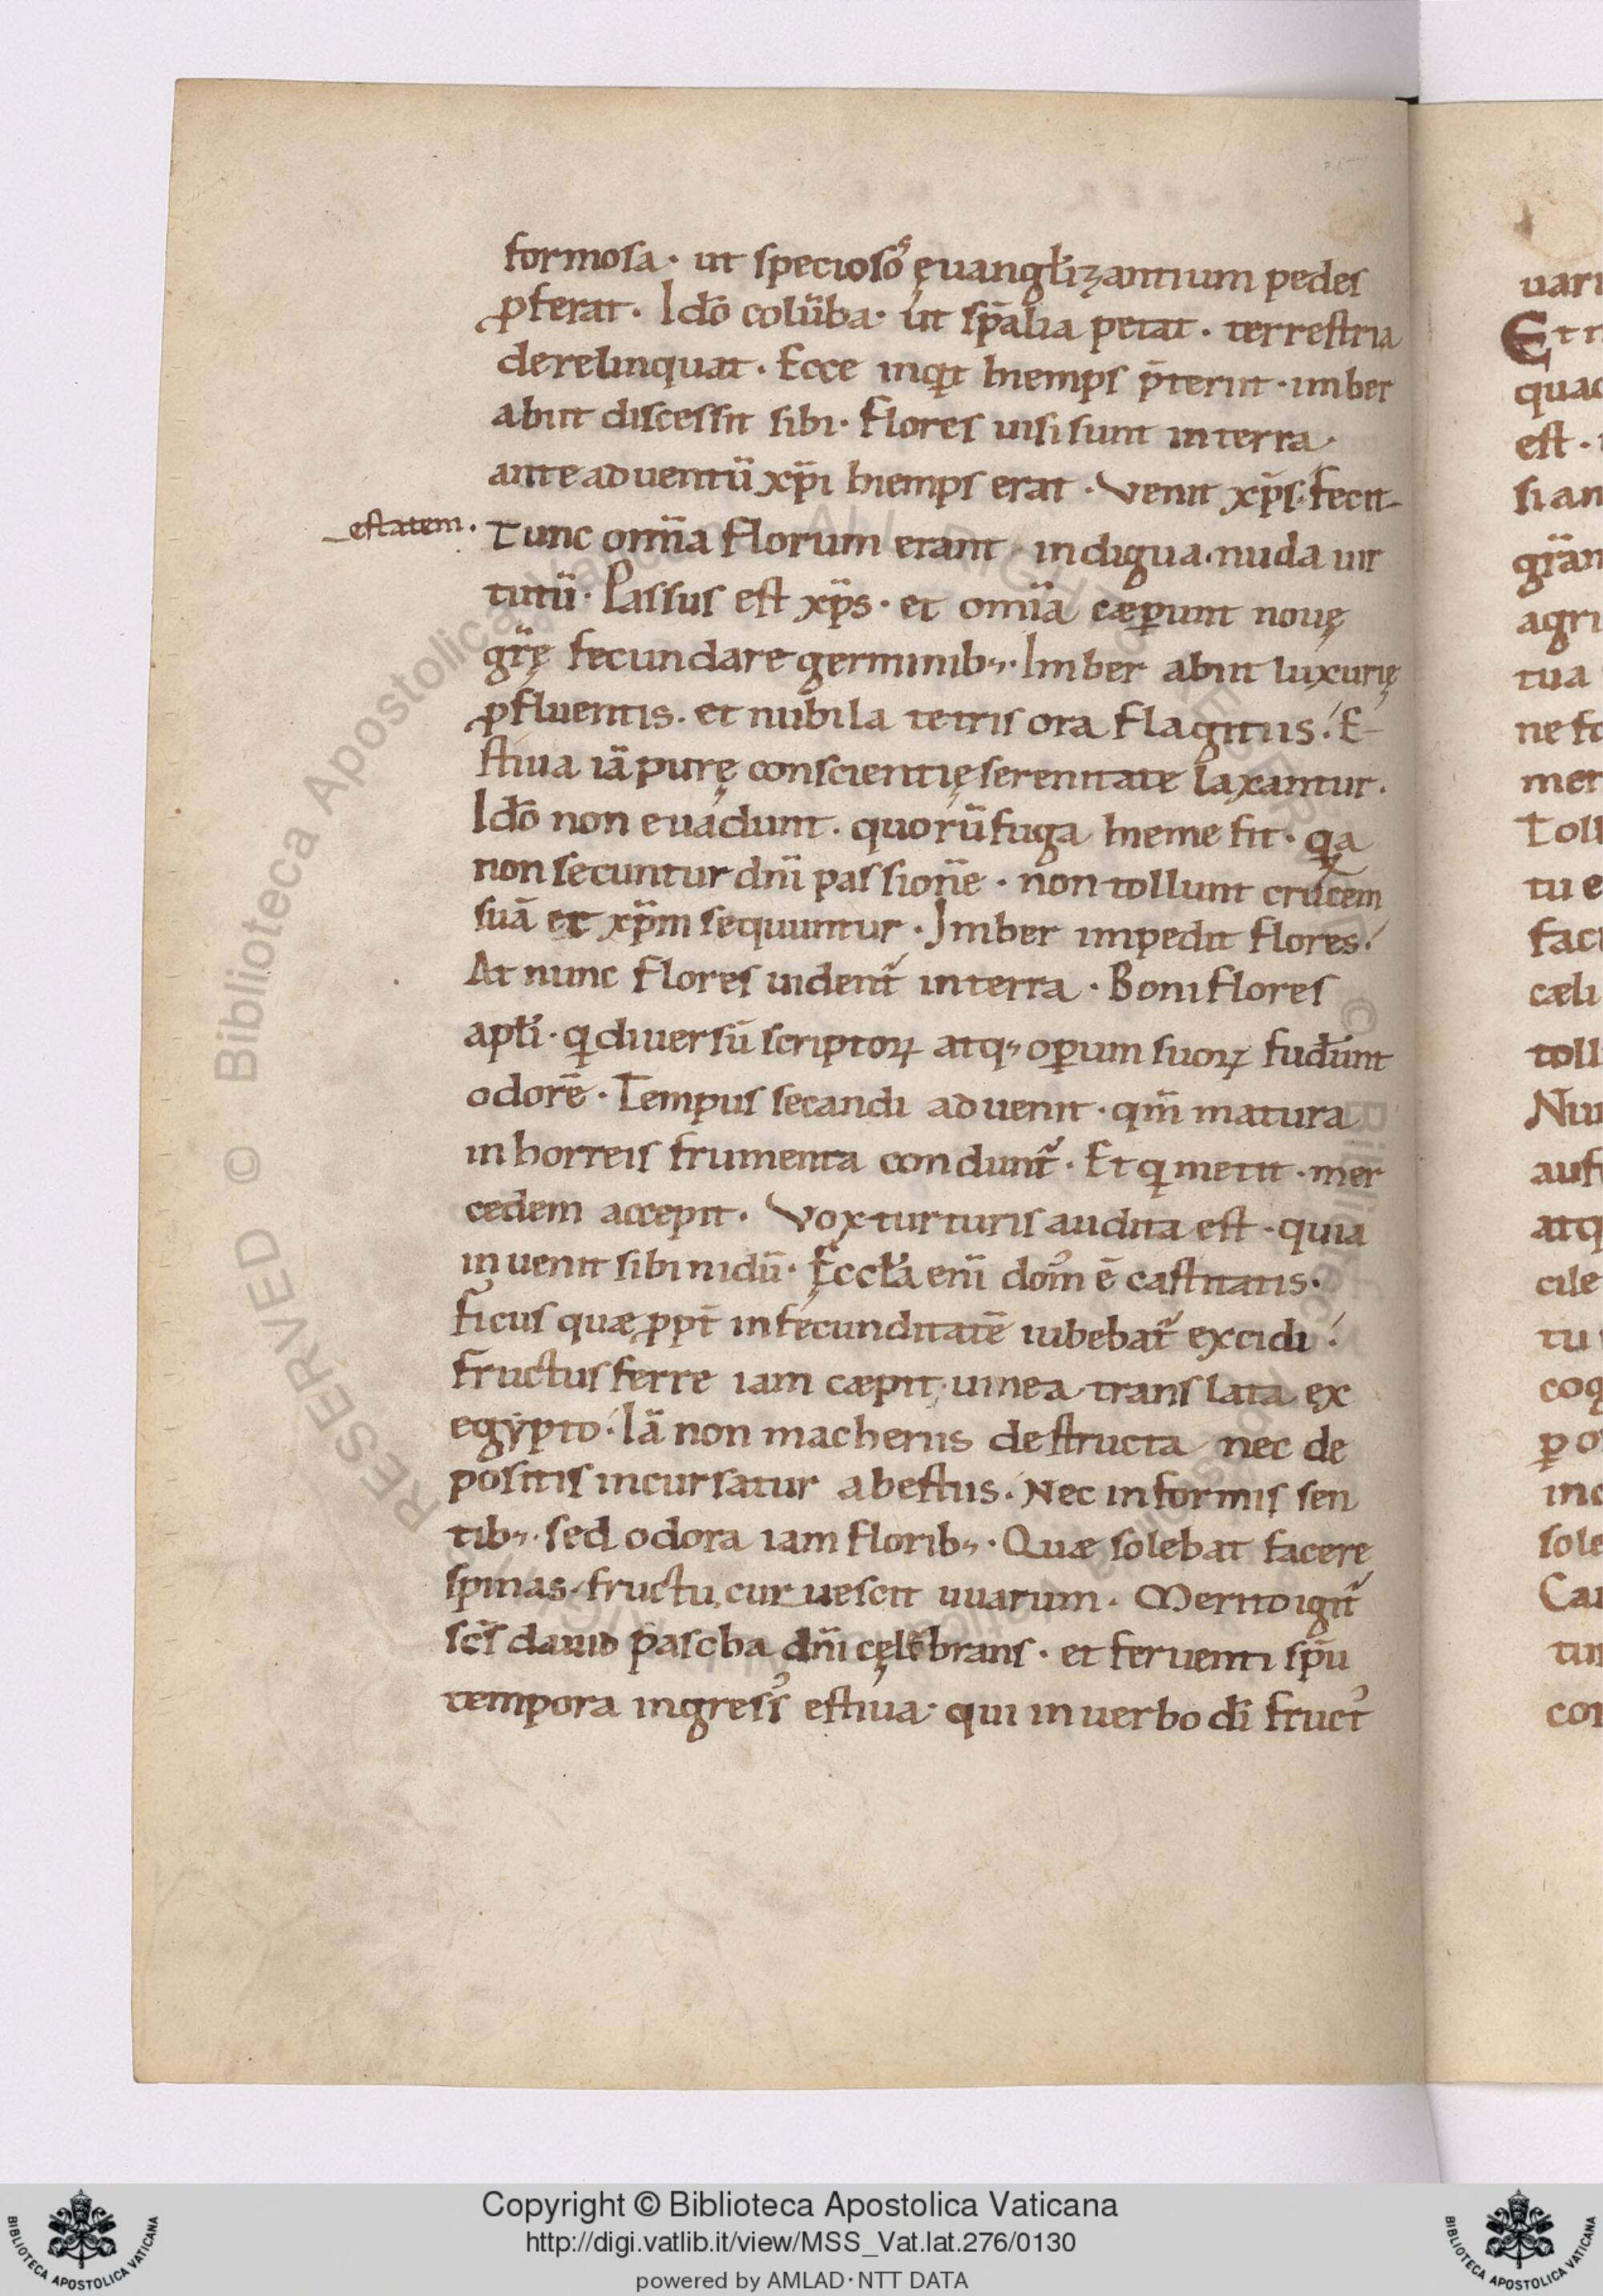 formosa· ut specioso͛ ęuanglizantium pedes
ꝓferat. Ido̅ colu̅ba· ut sp̅alia petat. terrestria
derelinquat. Ecce inqt hiemps p̅teriit· imber
abiit discessit sibi· Flores uisi sunt in terra·
ante aduentu̅ xp̅i hiemps erat. Venit xp̅s· fecit
estatem.
Tunc om̅ia florum erant indigua· nuda uir
tutu̅· Passus est xp̅s· et om̅ia cæꝑunt nouę
gr̅ę fecundare germinib;· Imber abiit luxurię
ꝓfluentis. et nubila tetris ora flagitiis. E
stiua ia̅ purę conscientię serenitate laxantur.
Ido̅ non euadunt. quoru̅ fuga hieme fit· qa
non secuntur dn̅i passione̅· non tollunt crucem
sua̅ et xp̅m sequuntur· Imber impedit flores.
At nunc flores uident̅ in terra· Boni flores
apl̅i· q diuersu̅ scriptoꝝ atq; oꝑum suoꝝ fuder̅unt
odore̅· Tempus secandi aduenit· qm̅ matura
in horreis frumenta condunt̅· Et q metit· mer
cedem accepit. Vox turturis audita est· quia
inuenit sibi nidu̅· Ęccl̅a eni̅ dom͛ e̅ castitatis·
ficus quæ ꝓpt̅ infecunditate̅ iubebat̅ excidi.
fructus ferre iam cæpit· uinea translata ex
egypto· Ia̅ non macheriis destructa nec de
positis incursatur a bestiis. Nec informis sen
tib;· sed odora iam florib;· Quæ solebat facere
spinas· fructu curuescit uuarum. Merito igit̅
scs̅ dauid pascha dn̅i cęlebrans· et feruenti sp̅u
tempora ingress͛ estiua· qui in uerbo di̅ fruct͛
uari
Et n
quac
est·
si an
gra̅n
agri
tua
ne fo
mer
Toll
tu e
fact
cæli
toll
Nu
aufe
atq
cile
tu
coq
ꝑ o
inc
sole
Cau
tur
cor
© Biblioteca Apostolica Vaticana ALL RIGHTS RESERVED
Copyright © Biblioteca Apostolica Vaticana
http://digi.vatlib.it/view/MSS_Vat.lat.276/0130
powered by AMLAD·NTT DATA
BIBLIOTECA APOSTOLICA VATICANA
BIBLIOTECA APOSTOLICA VATICANA